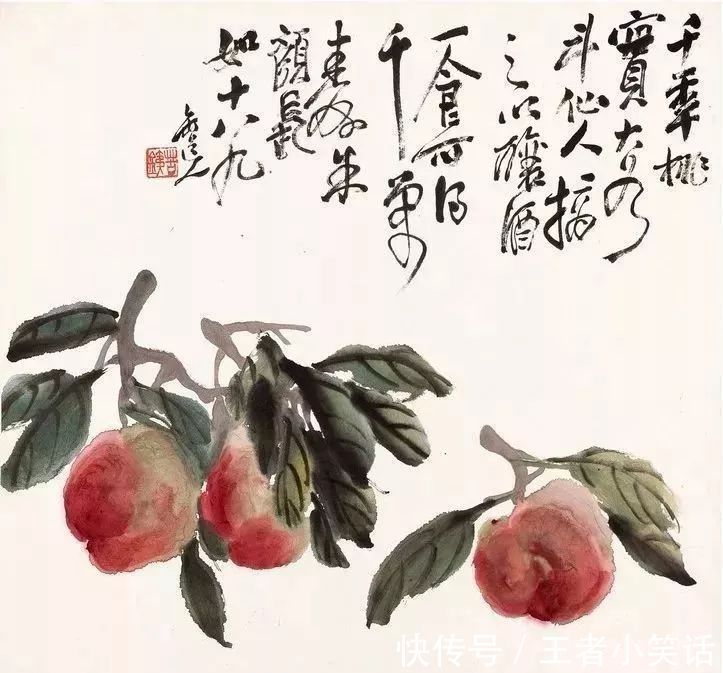 千年桃
實大如
斗仙人摘
之以釀酒
一食可得
千萬
壽朱
顏長
如十八九
苦鐵
快传号／王者小笑话